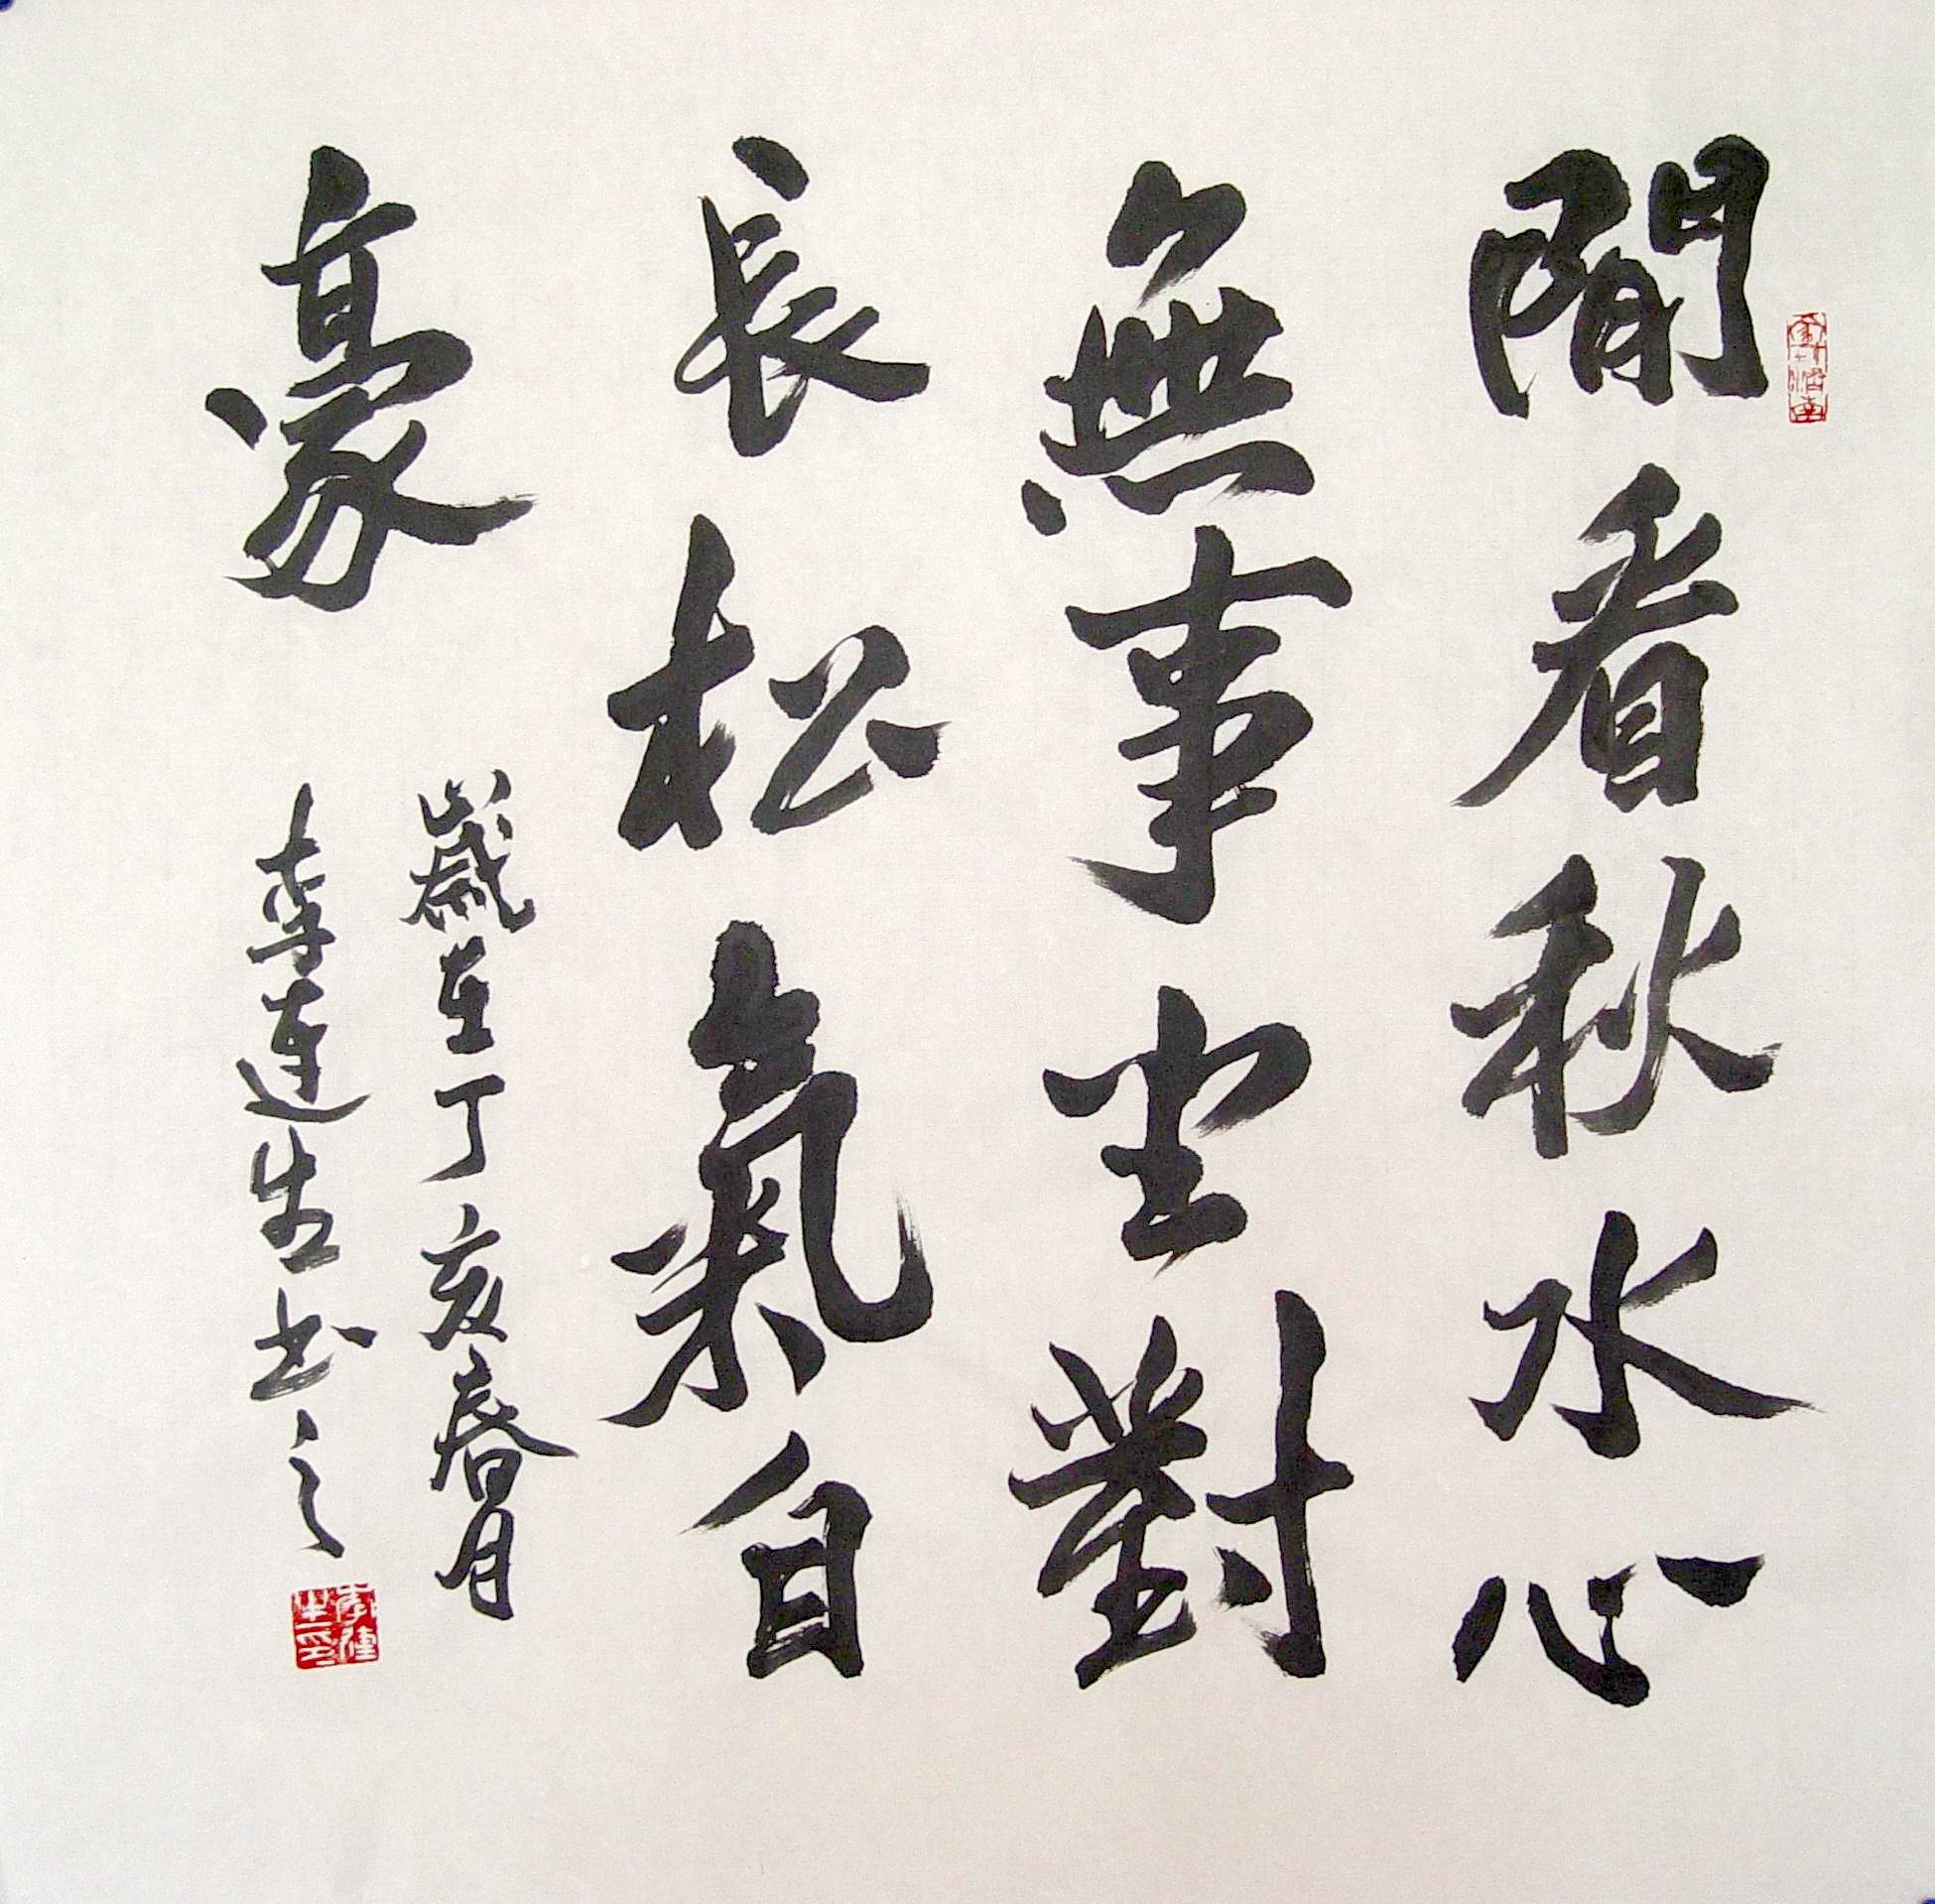 閒看秋水心
無事坐對
長松氣自
豪
歲在丁亥春月
李連生书之